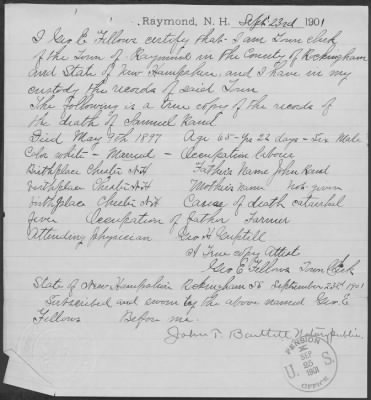 Raymond, N. H. Sept 23rd 1901
I Geo E Fellows certify that I am Town clerk
of the Town of Raymond in the County of Rockingham
and State of New Hampshire and I have in my
custody the records of said Town
The following is a true copy of the records of
the death of Samuel Rand
Died May 9th 1897 Age 68 - yrs 22 days - Sex Male
Color white - Married - Occupation laborer
Birthplace Chester NH Father's Name John Rand
birthplace Chester NH Mother's name not given
birthplace Chester NH Cause of death catarrhal
fever Occupation of father Farmer
Attending Physician Geo H Guptill
A True copy Attest
Geo E Fellows Town Clerk
State of New Hampshire Rockingham SS September 23rd 1901
Subscribed and sworn by the above named Geo. E
Fellows Before me
John T. Bartlett Notary public.
PENSION
SEP
25
1901
U. S.
OFFICE